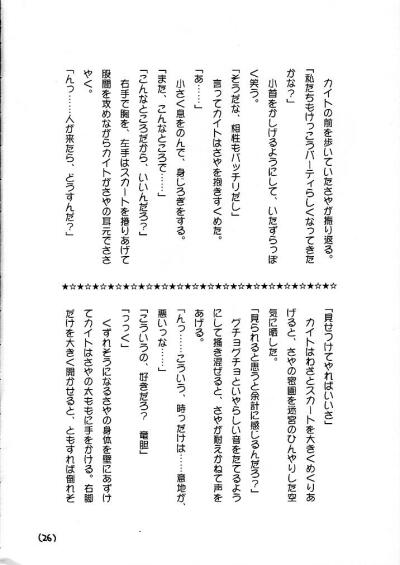 カイトの前を歩いていたさやが振り返る。
「私たちもけっこうパーティらしくなってきた
かな？」
小首をかしげるようにして、いたずらっぽ
く笑う。
「そうだな、相性もバッチリだし」
言ってカイトはさやを抱きすくめた。
「あ……」
小さく息をのんで、身じろぎをする。
「また、こんなところで……」
「こんなところだから、いいんだろ？」
右手で胸を、左手はスカートを捲りあげて
股間を攻めながらカイトがさやの耳元でささ
やく。
「んっ……人が来たら、どうすんだ？」
★☆★☆★☆★☆★☆★☆★☆★☆★☆★☆★☆★☆★☆★☆★☆★☆★
「見せつけてやればいいさ」
カイトはわざとスカートを大きくめくりあ
げると、さやの密園を迷宮のひんやりした空
気に晒した。
「見られると思うと余計に感じるんだろ？」
グチョグチョといやらしい音をたてるよう
にして掻き混ぜると、さやが耐えかねて声を
あげる。
「んっ……こういう、時っだけは……意地が、
悪いっな……」
「こういうの、好きだろ？　竜胆」
「つっく」
くずれそうになるさやの身体を壁にあずけ
てカイトはさやの太ももに手をかける。右脚
だけを大きく開かせると、ともすれば倒れそ
(26)